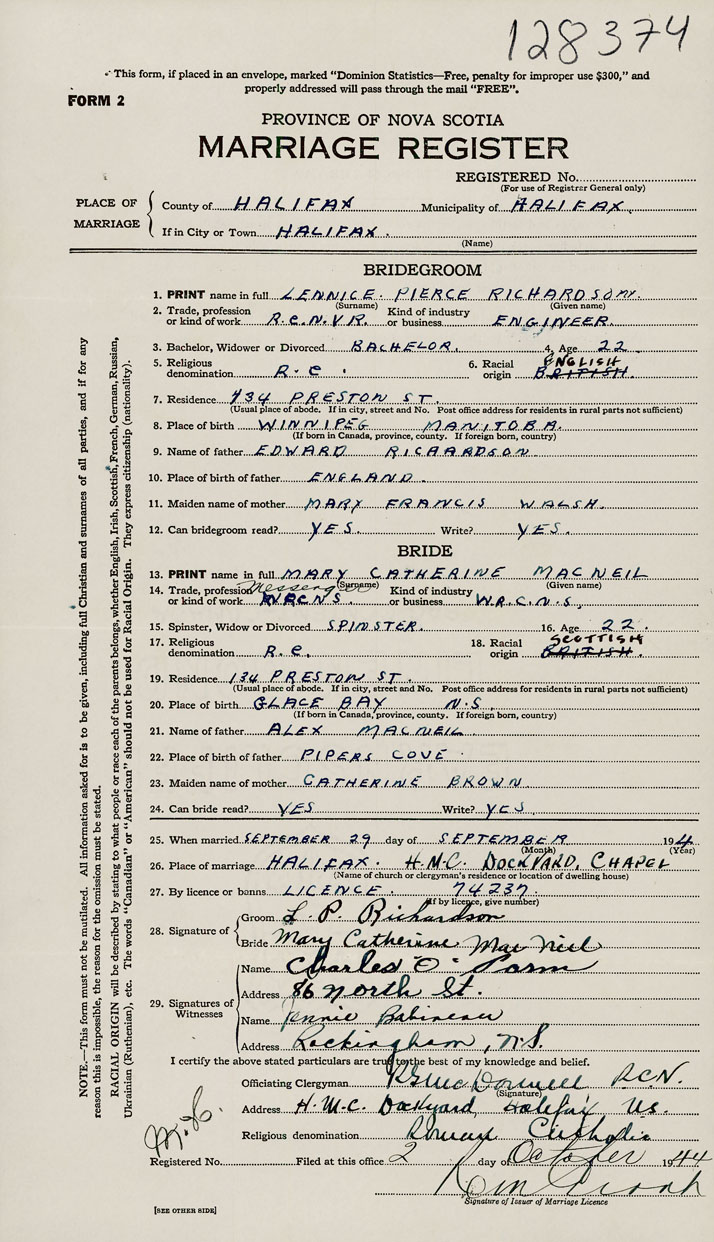 128374
.· This form, if placed in an envelope, marked "Dominion Statistics—Free, penalty for improper use $300," and
properly addressed will pass through the mail "FREE".
FORM 2
PROVINCE OF NOVA SCOTIA
MARRIAGE REGISTER
REGISTERED No.
(For use of Registrar General only)
PLACE OF MARRIAGE
County of HALIFAX Municipality of HALIFAX.
If in City or Town HALIFAX.
(Name)
BRIDEGROOM
1. PRINT name in full LENNICE. PIERCE RICHARDSON.
(Surname) (Given name)
2. Trade, profession or kind of work R.C.N.V.R. Kind of industry or business ENGINEER.
3. Bachelor, Widower or Divorced BACHELOR. 4. Age 22
5. Religious denomination R.C. 6. Racial origin ENGLISH BRITISH.
7. Residence 134 PRESTON ST.
(Usual place of abode. If in city, street and No. Post office address for residents in rural parts not sufficient)
8. Place of birth WINNIPEG MANITOBA.
(If born in Canada, province, county. If foreign born, country)
9. Name of father EDWARD RICAARDSON
10. Place of birth of father ENGLAND.
11. Maiden name of mother MARY FRANCIS WALSH.
12. Can bridegroom read? YES. Write? YES.
BRIDE
13. PRINT name in full MARY CATHERINE MACNEIL
(Surname) (Given name)
14. Trade, profession or kind of work Messenger WRCNS Kind of industry or business W.R.C.N.S.
15. Spinster, Widow or Divorced SPINSTER. 16. Age 22.
17. Religious denomination R.C. 18. Racial origin SCOTTISH BRITISH.
19. Residence 134 PRESTON ST.
(Usual place of abode. If in city, street and No. Post office address for residents in rural parts not sufficient)
20. Place of birth GLACE BAY N.S.
(If born in Canada, province, county. If foreign born, country)
21. Name of father ALEX MACNEIL
22. Place of birth of father PIPERS COVE
23. Maiden name of mother CATHERINE BROWN
24. Can bride read? YES Write? YES.
25. When married SEPTEMBER 29 day of SEPTEMBER 194
(Month) (Year)
26. Place of marriage HALIFAX. H.M.C. DOCKYARD, CHAPEL
(Name of church or clergyman's residence or location of dwelling house)
27. By licence or banns LICENCE. 74237.
(If by licence, give number)
28. Signature of
Groom L. P. Richardson
Bride Mary Catherine MacNeil
29. Signatures of Witnesses
Name Charles O'
Address 86 North St.
Name Jennie Babineau
Address Rockingham, N.S.
I certify the above stated particulars are true to the best of my knowledge and belief.
Officiating Clergyman RCN.
(Signature)
Address H.M.C. Dockyard Halifax
Religious denomination Roman Catholic
Registered No. Filed at this office 2 day of October 1944
Signature of Issuer of Marriage Licence
[SEE OTHER SIDE]
NOTE.—This form must not be mutilated. All information asked for is to be given, including full Christian and surnames of all parties, and if for any
reason this is impossible, the reason for the omission must be stated.
RACIAL ORIGIN will be described by stating to what people or race each of the parents belongs, whether English, Irish, Scottish, French, German, Russian,
Ukrainian (Ruthenian), etc. The words "Canadian" or "American" should not be used for Racial Origin. They express citizenship (nationality).